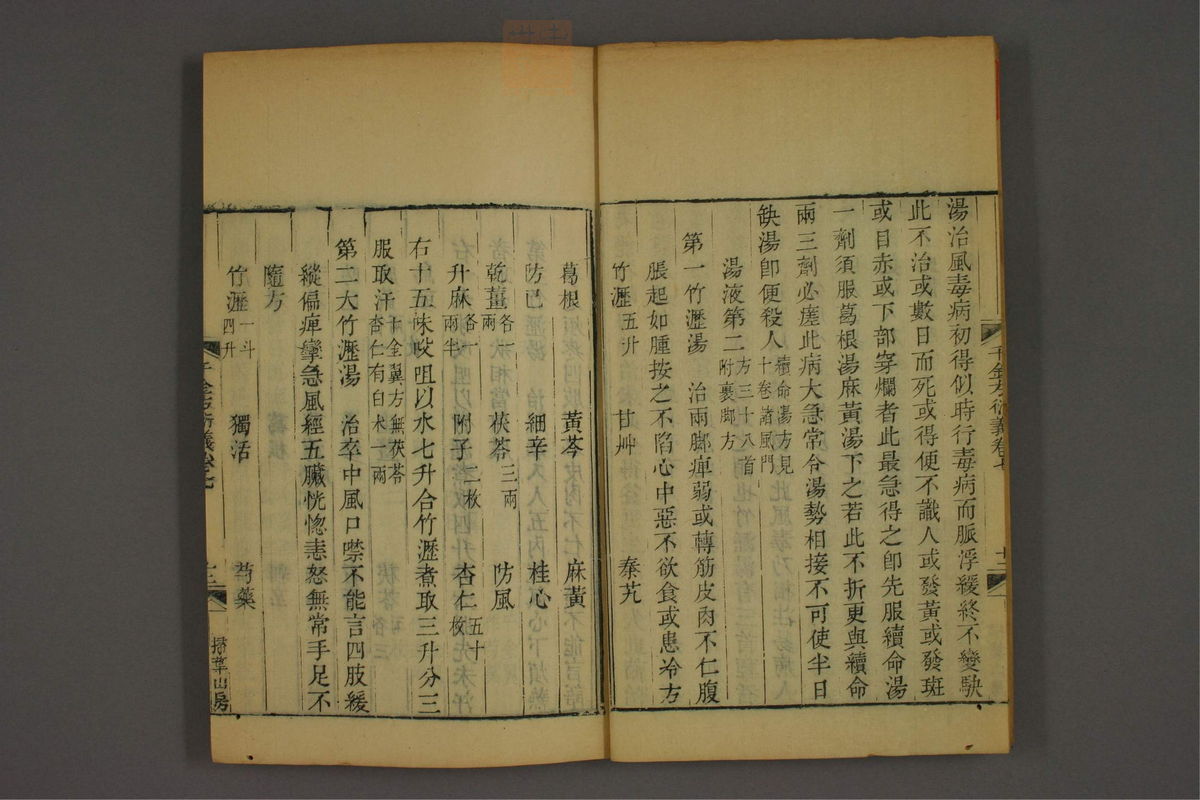 湯治風毒病初得似時行毒病而脈浮緩終不變駃
此不治或數日而死或得便不識人或發黃或發斑
或目赤或下部穿爛者此最急得之卽先服續命湯
一劑須服葛根湯麻黃湯下之若此不折更與續命
兩三劑必瘥此病大急常令湯勢相接不可使半日
缺湯卽便殺人續命湯方見十卷諸風門
湯液第二方三十八首附裹腳方
第一竹瀝湯 治兩腳痺弱或轉筋皮肉不仁腹
脹起如腫按之不陷心中惡不欲食或患冷方
竹瀝五升 甘艸 秦艽
千金方衍義卷七 十二
葛根 黃芩 麻黃
防己 細辛 桂心
乾薑各一兩 茯苓三兩 防風
升麻各一兩半 附子二枚 杏仁五十枚
右十五味㕮咀以水七升合竹瀝煮取三升分三
服取汗千金翼方無茯苓杏仁有白朮一兩
第二大竹瀝湯 治卒中風口噤不能言四肢緩
縱偏痺攣急風經五臟恍惚恚怒無常手足不
隨方
竹瀝一斗四升 獨活 芍藥
千金方衍義卷七
掃葉山房